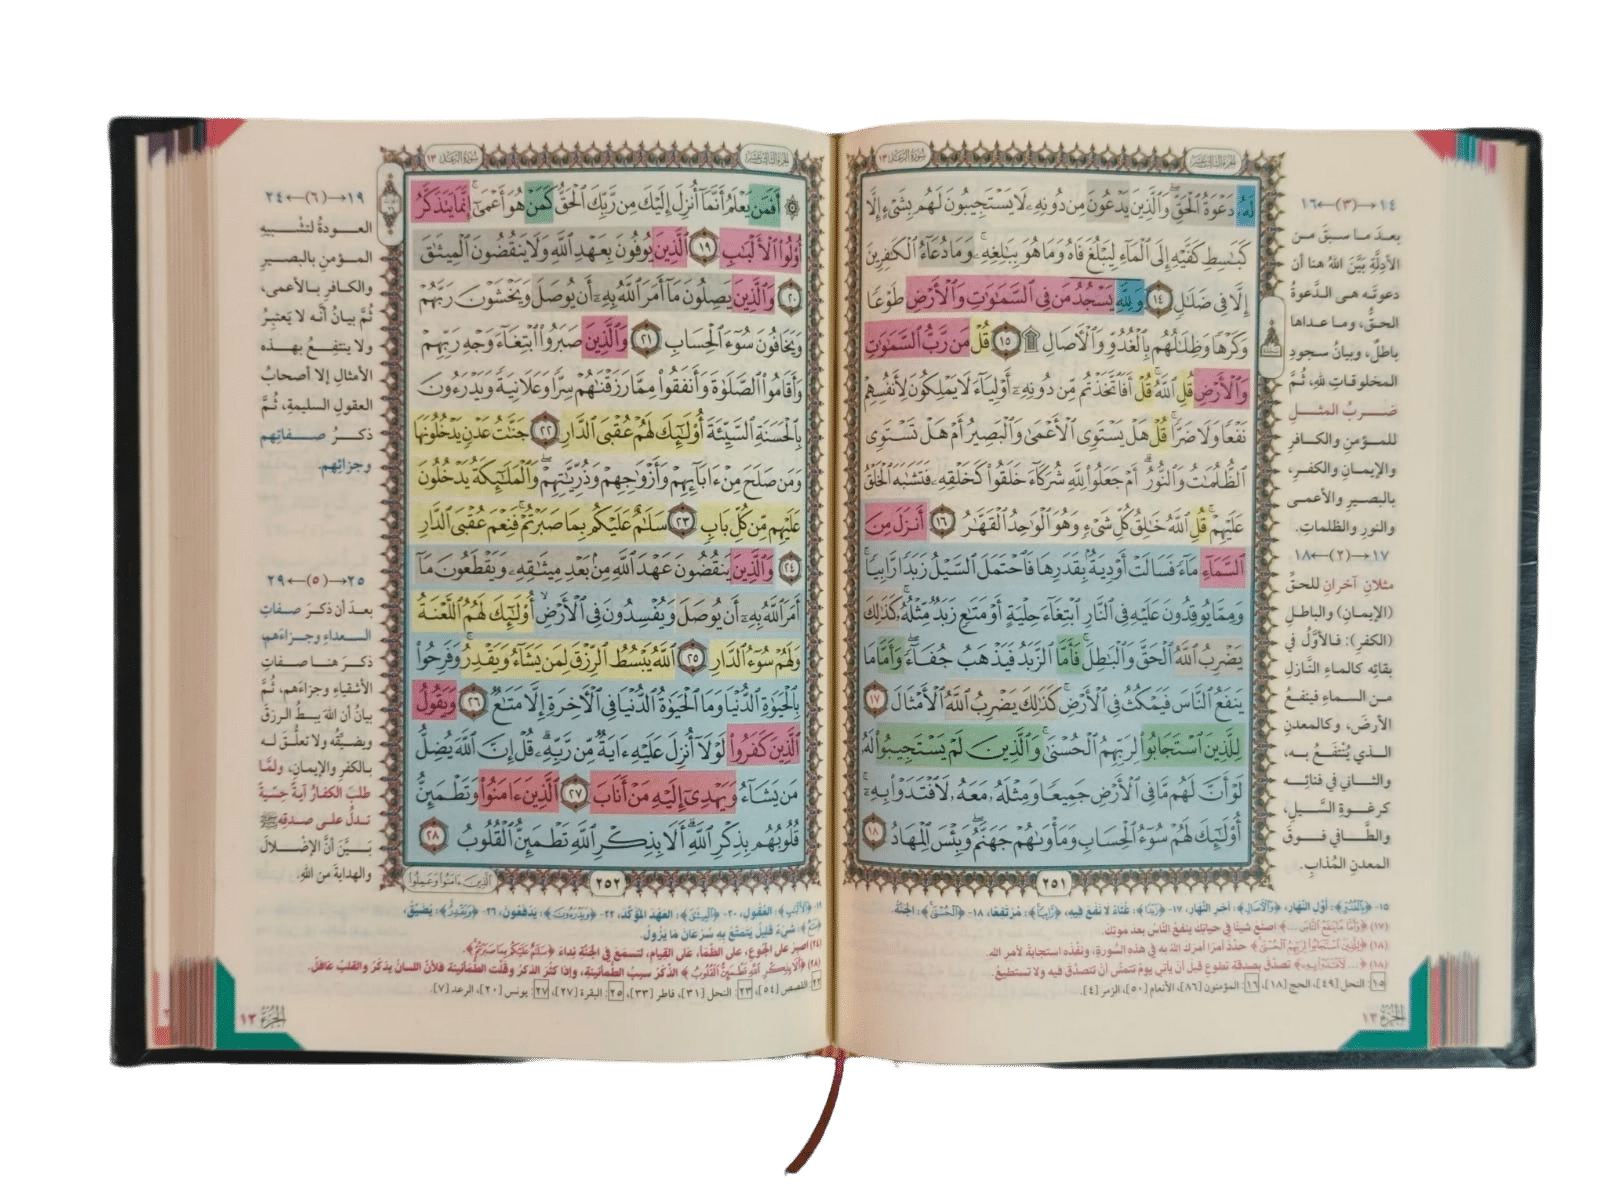 الجزء الثالث عشر
سورة الرعد ١٣
لَهُۥ دَعْوَةُ ٱلْحَقِّ ۖ وَٱلَّذِينَ يَدْعُونَ مِن دُونِهِۦ لَا يَسْتَجِيبُونَ لَهُم بِشَىْءٍ إِلَّا
كَبَـٰسِطِ كَفَّيْهِ إِلَى ٱلْمَآءِ لِيَبْلُغَ فَاهُ وَمَا هُوَ بِبَـٰلِغِهِۦ ۚ وَمَا دُعَآءُ ٱلْكَـٰفِرِينَ
إِلَّا فِى ضَلَـٰلٍ ١٤ وَلِلَّهِ يَسْجُدُ مَن فِى ٱلسَّمَـٰوَٰتِ وَٱلْأَرْضِ طَوْعًا
وَكَرْهًا وَظِلَـٰلُهُم بِٱلْغُدُوِّ وَٱلْـَٔاصَالِ ۩ ١٥ قُلْ مَن رَّبُّ ٱلسَّمَـٰوَٰتِ
وَٱلْأَرْضِ قُلِ ٱللَّهُ ۚ قُلْ أَفَٱتَّخَذْتُم مِّن دُونِهِۦٓ أَوْلِيَآءَ لَا يَمْلِكُونَ لِأَنفُسِهِمْ
نَفْعًا وَلَا ضَرًّا ۚ قُلْ هَلْ يَسْتَوِى ٱلْأَعْمَىٰ وَٱلْبَصِيرُ أَمْ هَلْ تَسْتَوِى
ٱلظُّلُمَـٰتُ وَٱلنُّورُ ۗ أَمْ جَعَلُوا۟ لِلَّهِ شُرَكَآءَ خَلَقُوا۟ كَخَلْقِهِۦ فَتَشَـٰبَهَ ٱلْخَلْقُ
عَلَيْهِمْ ۚ قُلِ ٱللَّهُ خَـٰلِقُ كُلِّ شَىْءٍ وَهُوَ ٱلْوَٰحِدُ ٱلْقَهَّـٰرُ ١٦ أَنزَلَ مِنَ
ٱلسَّمَآءِ مَآءً فَسَالَتْ أَوْدِيَةٌۢ بِقَدَرِهَا فَٱحْتَمَلَ ٱلسَّيْلُ زَبَدًا رَّابِيًا ۚ
وَمِمَّا يُوقِدُونَ عَلَيْهِ فِى ٱلنَّارِ ٱبْتِغَآءَ حِلْيَةٍ أَوْ مَتَـٰعٍ زَبَدٌ مِّثْلُهُۥ ۚ كَذَٰلِكَ
يَضْرِبُ ٱللَّهُ ٱلْحَقَّ وَٱلْبَـٰطِلَ ۚ فَأَمَّا ٱلزَّبَدُ فَيَذْهَبُ جُفَآءً ۖ وَأَمَّا مَا
يَنفَعُ ٱلنَّاسَ فَيَمْكُثُ فِى ٱلْأَرْضِ ۚ كَذَٰلِكَ يَضْرِبُ ٱللَّهُ ٱلْأَمْثَالَ ١٧
لِلَّذِينَ ٱسْتَجَابُوا۟ لِرَبِّهِمُ ٱلْحُسْنَىٰ ۚ وَٱلَّذِينَ لَمْ يَسْتَجِيبُوا۟ لَهُۥ
لَوْ أَنَّ لَهُم مَّا فِى ٱلْأَرْضِ جَمِيعًا وَمِثْلَهُۥ مَعَهُۥ لَٱفْتَدَوْا۟ بِهِۦٓ ۚ
أُو۟لَـٰٓئِكَ لَهُمْ سُوٓءُ ٱلْحِسَابِ وَمَأْوَىٰهُمْ جَهَنَّمُ ۖ وَبِئْسَ ٱلْمِهَادُ ١٨
٢٥١
١٤→(٣)←١٦
بعدَ ما سبقَ من
الأدِلَّةِ بَيَّنَ اللهُ هنا أن
دعوتَه هى الدَّعوةُ
الحقُّ، وما عداها
باطلٌ، وبيانُ سجودِ
المخلوقاتِ للهِ، ثُمَّ
ضربُ المثلِ
للمؤمنِ والكافرِ
والإيمانِ والكفرِ،
بالبصيرِ والأعمى
والنورِ والظلماتِ.
١٧→(٢)←١٨
مثلانِ آخرانِ للحقِّ
(الإيمانِ) والباطلِ
(الكفرِ): فالأوَّلُ في
بقائِه كالماءِ النَّازلِ
من السماءِ فينفعُ
الأرضَ، وكالمعدنِ
الذي يُنْتَفَعُ به،
والثاني في فنائِه
كرغوةِ السَّيلِ،
والطَّافي فوقَ
المعدنِ المُذابِ.
١٥- ﴿بِالْغُدُوِّ﴾: أَوَّلِ النَّهَارِ، ﴿وَالْآصَالِ﴾: آخِرِ النَّهَارِ، ١٧- ﴿زَبَدًا﴾: غُثَاءً لَا نَفْعَ فِيهِ، ﴿رَّابِيًا﴾: مُرْتَفِعًا، ١٨- ﴿الْحُسْنَىٰ﴾: الْجَنَّةُ.
(١٧) ﴿وَأَمَّا مَا يَنفَعُ النَّاسَ ...﴾ اصنع شيئًا في حياتِك ينفعُ النَّاسَ بعدَ موتِك.
(١٨) ﴿لِلَّذِينَ اسْتَجَابُوا لِرَبِّهِمُ الْحُسْنَىٰ﴾ حدّدْ أمرًا أمرَك اللهُ به في هذه السُّورةِ، ونفّذْه استجابةً لأمرِ اللهِ.
(١٨) ﴿... لَافْتَدَوْا بِهِ﴾ تصدَّقْ بصدقةِ تطوعٍ قبلَ أن يأتيَ يومٌ تتمنَّى أن تتصدَّقَ فيه ولا تستطيعُ.
١٥: النحل [٤٩]، الحج [١٨]، ١٦: المؤمنون [٨٦]، الأنعام [٥٠]، الزمر [٤].
الجزء ١٣
الجزء الثالث عشر
سورة الرعد ١٣
۞ أَفَمَن يَعْلَمُ أَنَّمَآ أُنزِلَ إِلَيْكَ مِن رَّبِّكَ ٱلْحَقُّ كَمَنْ هُوَ أَعْمَىٰٓ ۚ إِنَّمَا يَتَذَكَّرُ
أُو۟لُوا۟ ٱلْأَلْبَـٰبِ ١٩ ٱلَّذِينَ يُوفُونَ بِعَهْدِ ٱللَّهِ وَلَا يَنقُضُونَ ٱلْمِيثَـٰقَ
٢٠ وَٱلَّذِينَ يَصِلُونَ مَآ أَمَرَ ٱللَّهُ بِهِۦٓ أَن يُوصَلَ وَيَخْشَوْنَ رَبَّهُمْ
وَيَخَافُونَ سُوٓءَ ٱلْحِسَابِ ٢١ وَٱلَّذِينَ صَبَرُوا۟ ٱبْتِغَآءَ وَجْهِ رَبِّهِمْ
وَأَقَامُوا۟ ٱلصَّلَوٰةَ وَأَنفَقُوا۟ مِمَّا رَزَقْنَـٰهُمْ سِرًّا وَعَلَانِيَةً وَيَدْرَءُونَ
بِٱلْحَسَنَةِ ٱلسَّيِّئَةَ أُو۟لَـٰٓئِكَ لَهُمْ عُقْبَى ٱلدَّارِ ٢٢ جَنَّـٰتُ عَدْنٍ يَدْخُلُونَهَا
وَمَن صَلَحَ مِنْ ءَابَآئِهِمْ وَأَزْوَٰجِهِمْ وَذُرِّيَّـٰتِهِمْ ۖ وَٱلْمَلَـٰٓئِكَةُ يَدْخُلُونَ
عَلَيْهِم مِّن كُلِّ بَابٍ ٢٣ سَلَـٰمٌ عَلَيْكُم بِمَا صَبَرْتُمْ ۚ فَنِعْمَ عُقْبَى ٱلدَّارِ
٢٤ وَٱلَّذِينَ يَنقُضُونَ عَهْدَ ٱللَّهِ مِنۢ بَعْدِ مِيثَـٰقِهِۦ وَيَقْطَعُونَ مَآ
أَمَرَ ٱللَّهُ بِهِۦٓ أَن يُوصَلَ وَيُفْسِدُونَ فِى ٱلْأَرْضِ ۙ أُو۟لَـٰٓئِكَ لَهُمُ ٱللَّعْنَةُ
وَلَهُمْ سُوٓءُ ٱلدَّارِ ٢٥ ٱللَّهُ يَبْسُطُ ٱلرِّزْقَ لِمَن يَشَآءُ وَيَقْدِرُ ۚ وَفَرِحُوا۟
بِٱلْحَيَوٰةِ ٱلدُّنْيَا وَمَا ٱلْحَيَوٰةُ ٱلدُّنْيَا فِى ٱلْـَٔاخِرَةِ إِلَّا مَتَـٰعٌ ٢٦ وَيَقُولُ
ٱلَّذِينَ كَفَرُوا۟ لَوْلَآ أُنزِلَ عَلَيْهِ ءَايَةٌ مِّن رَّبِّهِۦ ۗ قُلْ إِنَّ ٱللَّهَ يُضِلُّ
مَن يَشَآءُ وَيَهْدِىٓ إِلَيْهِ مَنْ أَنَابَ ٢٧ ٱلَّذِينَ ءَامَنُوا۟ وَتَطْمَئِنُّ
قُلُوبُهُم بِذِكْرِ ٱللَّهِ ۗ أَلَا بِذِكْرِ ٱللَّهِ تَطْمَئِنُّ ٱلْقُلُوبُ ٢٨
الَّذِينَ ءَامَنُوا وَعَمِلُوا
٢٥٢
١٩→(٦)←٢٤
العودةُ لتشبيهِ
المؤمنِ بالبصيرِ
والكافرِ بالأعمى،
ثُمَّ بيانُ أنَّه لا يَعتبِرُ
ولا ينتفِعُ بهذه
الأمثالِ إلا أصحابُ
العقولِ السليمةِ، ثُمَّ
ذكرُ صفاتِهم
وجزائِهم.
٢٥→(٥)←٢٩
بعدَ أن ذكرَ صفاتِ
السعداءِ وجزاءَهم،
ذكرَ هنا صفاتِ
الأشقياءِ وجزاءَهم، ثُمَّ
بيانُ أن اللهَ يبسطُ الرزقَ
ويضيِّقُه ولا تعلُّقَ له
بالكفرِ والإيمانِ، ولمَّا
طلبَ الكفارُ آيةً حِسّيةً
تدلُّ على صدقِه ﷺ
بَيَّنَ أنَّ الإضلالَ
والهدايةَ من اللهِ.
١٩- ﴿الْأَلْبَابِ﴾: الْعُقُولِ، ٢٠- ﴿الْمِيثَاقَ﴾: الْعَهْدَ الْمُؤَكَّدَ، ٢٢- ﴿وَيَدْرَءُونَ﴾: يَدْفَعُونَ، ٢٦- ﴿وَيَقْدِرُ﴾: يُضَيِّقُ،
﴿مَتَاعٌ﴾: شَيْءٌ قَلِيلٌ يُتَمَتَّعُ بِهِ سُرْعَانَ مَا يَزُولُ.
(٢٤) اصبرْ على الجُوعِ، على الظَّمأِ، على القِيامِ، لتسمعَ في الجَنَّةِ نِداءَ ﴿سَلَامٌ عَلَيْكُم بِمَا صَبَرْتُمْ﴾.
(٢٨) ﴿أَلَا بِذِكْرِ اللَّهِ تَطْمَئِنُّ الْقُلُوبُ﴾ الذِّكرُ سببُ الطُّمأنينةِ، وإذا كثُرَ الذكرُ وقلَّت الطمأنينةُ فلأنَّ اللسانَ يذكرُ والقلبَ غافلٌ.
٢٢: القصص [٥٤]، ٢٣: النحل [٣١]، فاطر [٣٣]، ٢٥: البقرة [٢٧]، ٢٧: يونس [٢٠]، الرعد [٧].
الجزء ١٣